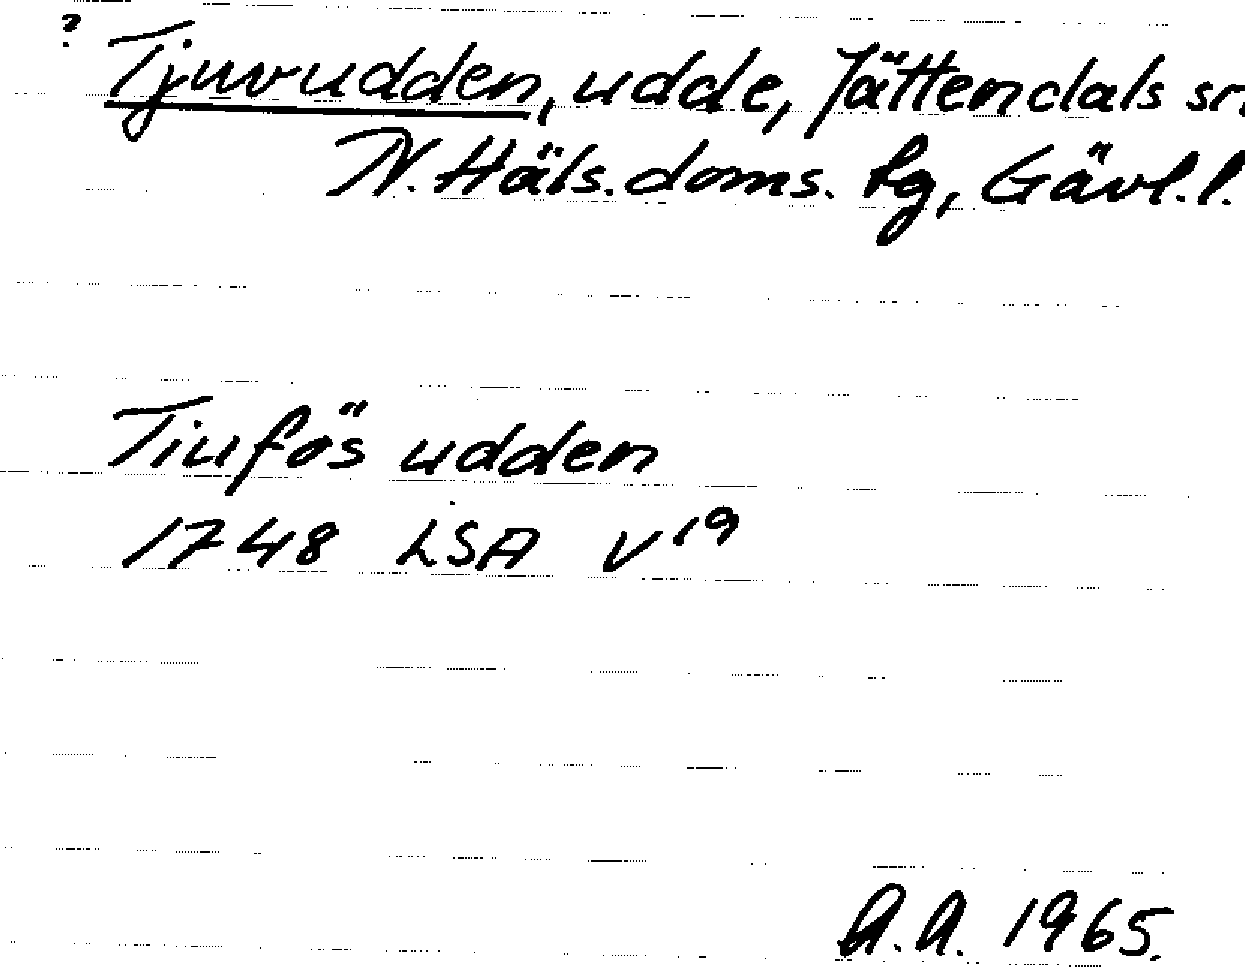 ? Tjuvudden, udde, Jättendals sn.
N. Häls. doms. fg, Gävl.l.
Tiufös udden
1748 LSA V¹⁹
A.A. 1965.